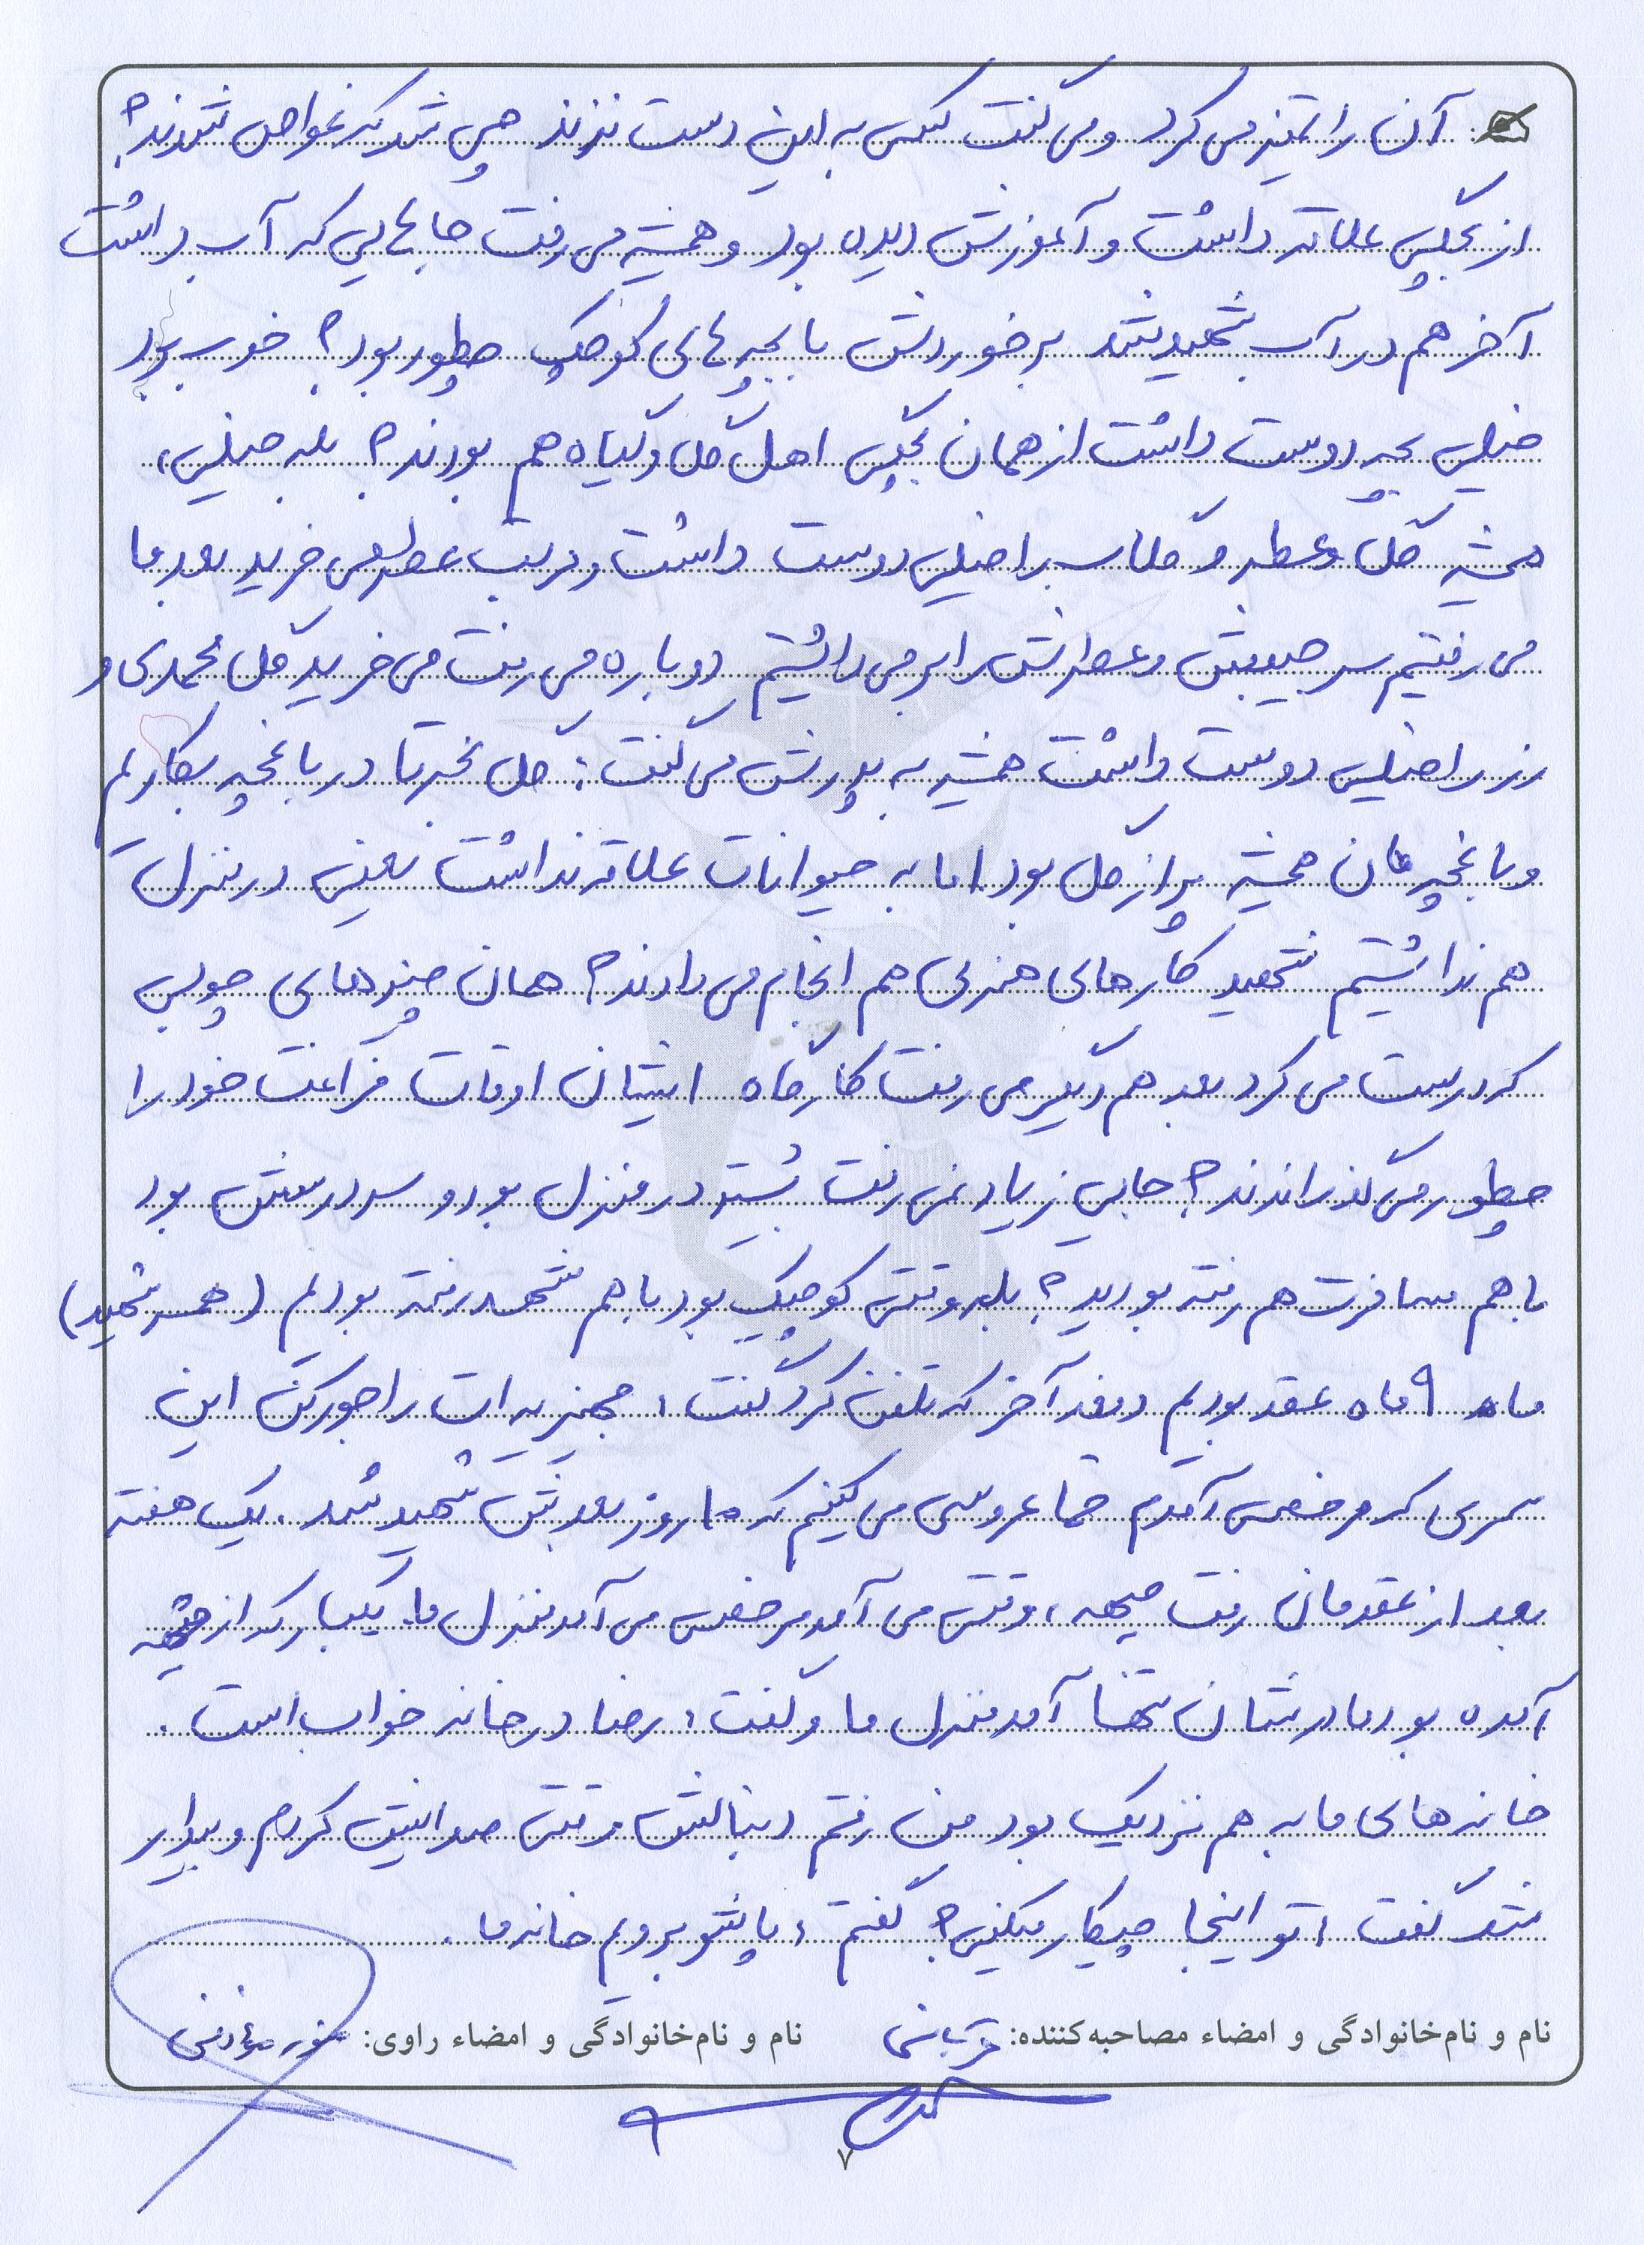 آن را تمیز می کرد و می گفت کسی به این دست نزند چی شد که غواص شدند؟
از بچگی علاقه داشت و آموزش دیده بود و همیشه می رفت جاهایی که آب داشت
آخر هم در آب شهید شد برخوردش با بچه های کوچک چطور بود؟ خوب بود
خیلی بچه دوست داشت از همان بچگی اهل گل و گیاه هم بودند؟ بله خیلی،
همیشه گل و عطر و گلاب را خیلی دوست داشت و مرتب عطر می خرید بعد ما
می رفتیم سر جیبش و عطرش را بر می داشتیم دوباره می رفت می خرید گل محمدی و
رز را خیلی دوست داشت همیشه به پدرش می گفت: گل بخر تا در باغچه بکارم
و باغچه مان همیشه پر از گل بود اما به حیوانات علاقه نداشت یعنی در منزل
هم نداشتیم شهید کارهای هنری هم انجام می دادند؟ همان چیزهای چوبی
که درست می کرد بعد هم دیگر می رفت کارگاه ایشان اوقات فراغت خود را
چطور می گذراندند؟ جایی زیاد نمی رفت بیشتر در منزل بود و سر درسش بود
با هم مسافرت هم رفته بودید؟ بله وقتی کوچک بود با هم مشهد رفته بودیم (همسر شهید)
ما ۹ ماه عقد بودیم دفعه آخر که تلفن کرد گفت: جهیزیه ات را جور کن این
سری که مرخصی آمدم حتما عروسی می کنیم که ۱۰ روز بعدش شهید شد. یک هفته
بعد از عقدمان رفت جبهه، وقتی می آمد مرخصی می آمد منزل ما. یکبار که از جبهه
آمده بود مادرشان تنها آمد منزل ما و گفت: رضا در خانه خواب است.
خانه های ما به هم نزدیک بود من رفتم دنبالش وقتی صدایش کردم و بیدار
شد گفت: تو اینجا چیکار میکنی؟ گفتم: پاشو برویم خانه ما.
نام و نام‌خانوادگی و امضاء مصاحبه‌کننده: نام و نام‌خانوادگی و امضاء راوی:
۷